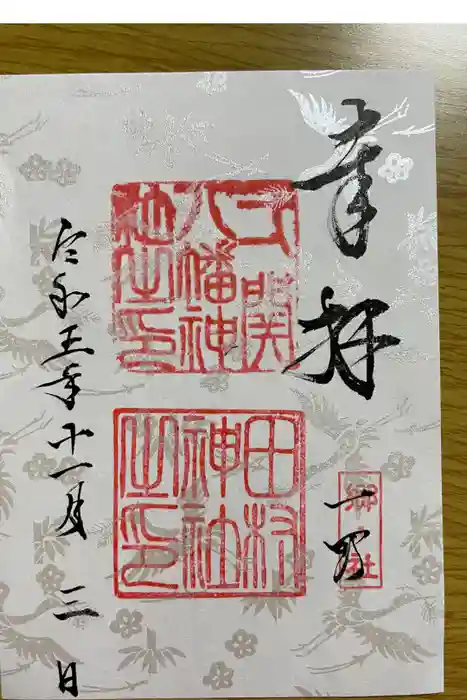 奉拝
郷社
一関
関
八幡神
社之印
田村
神社
之印
令和五年十一月三日